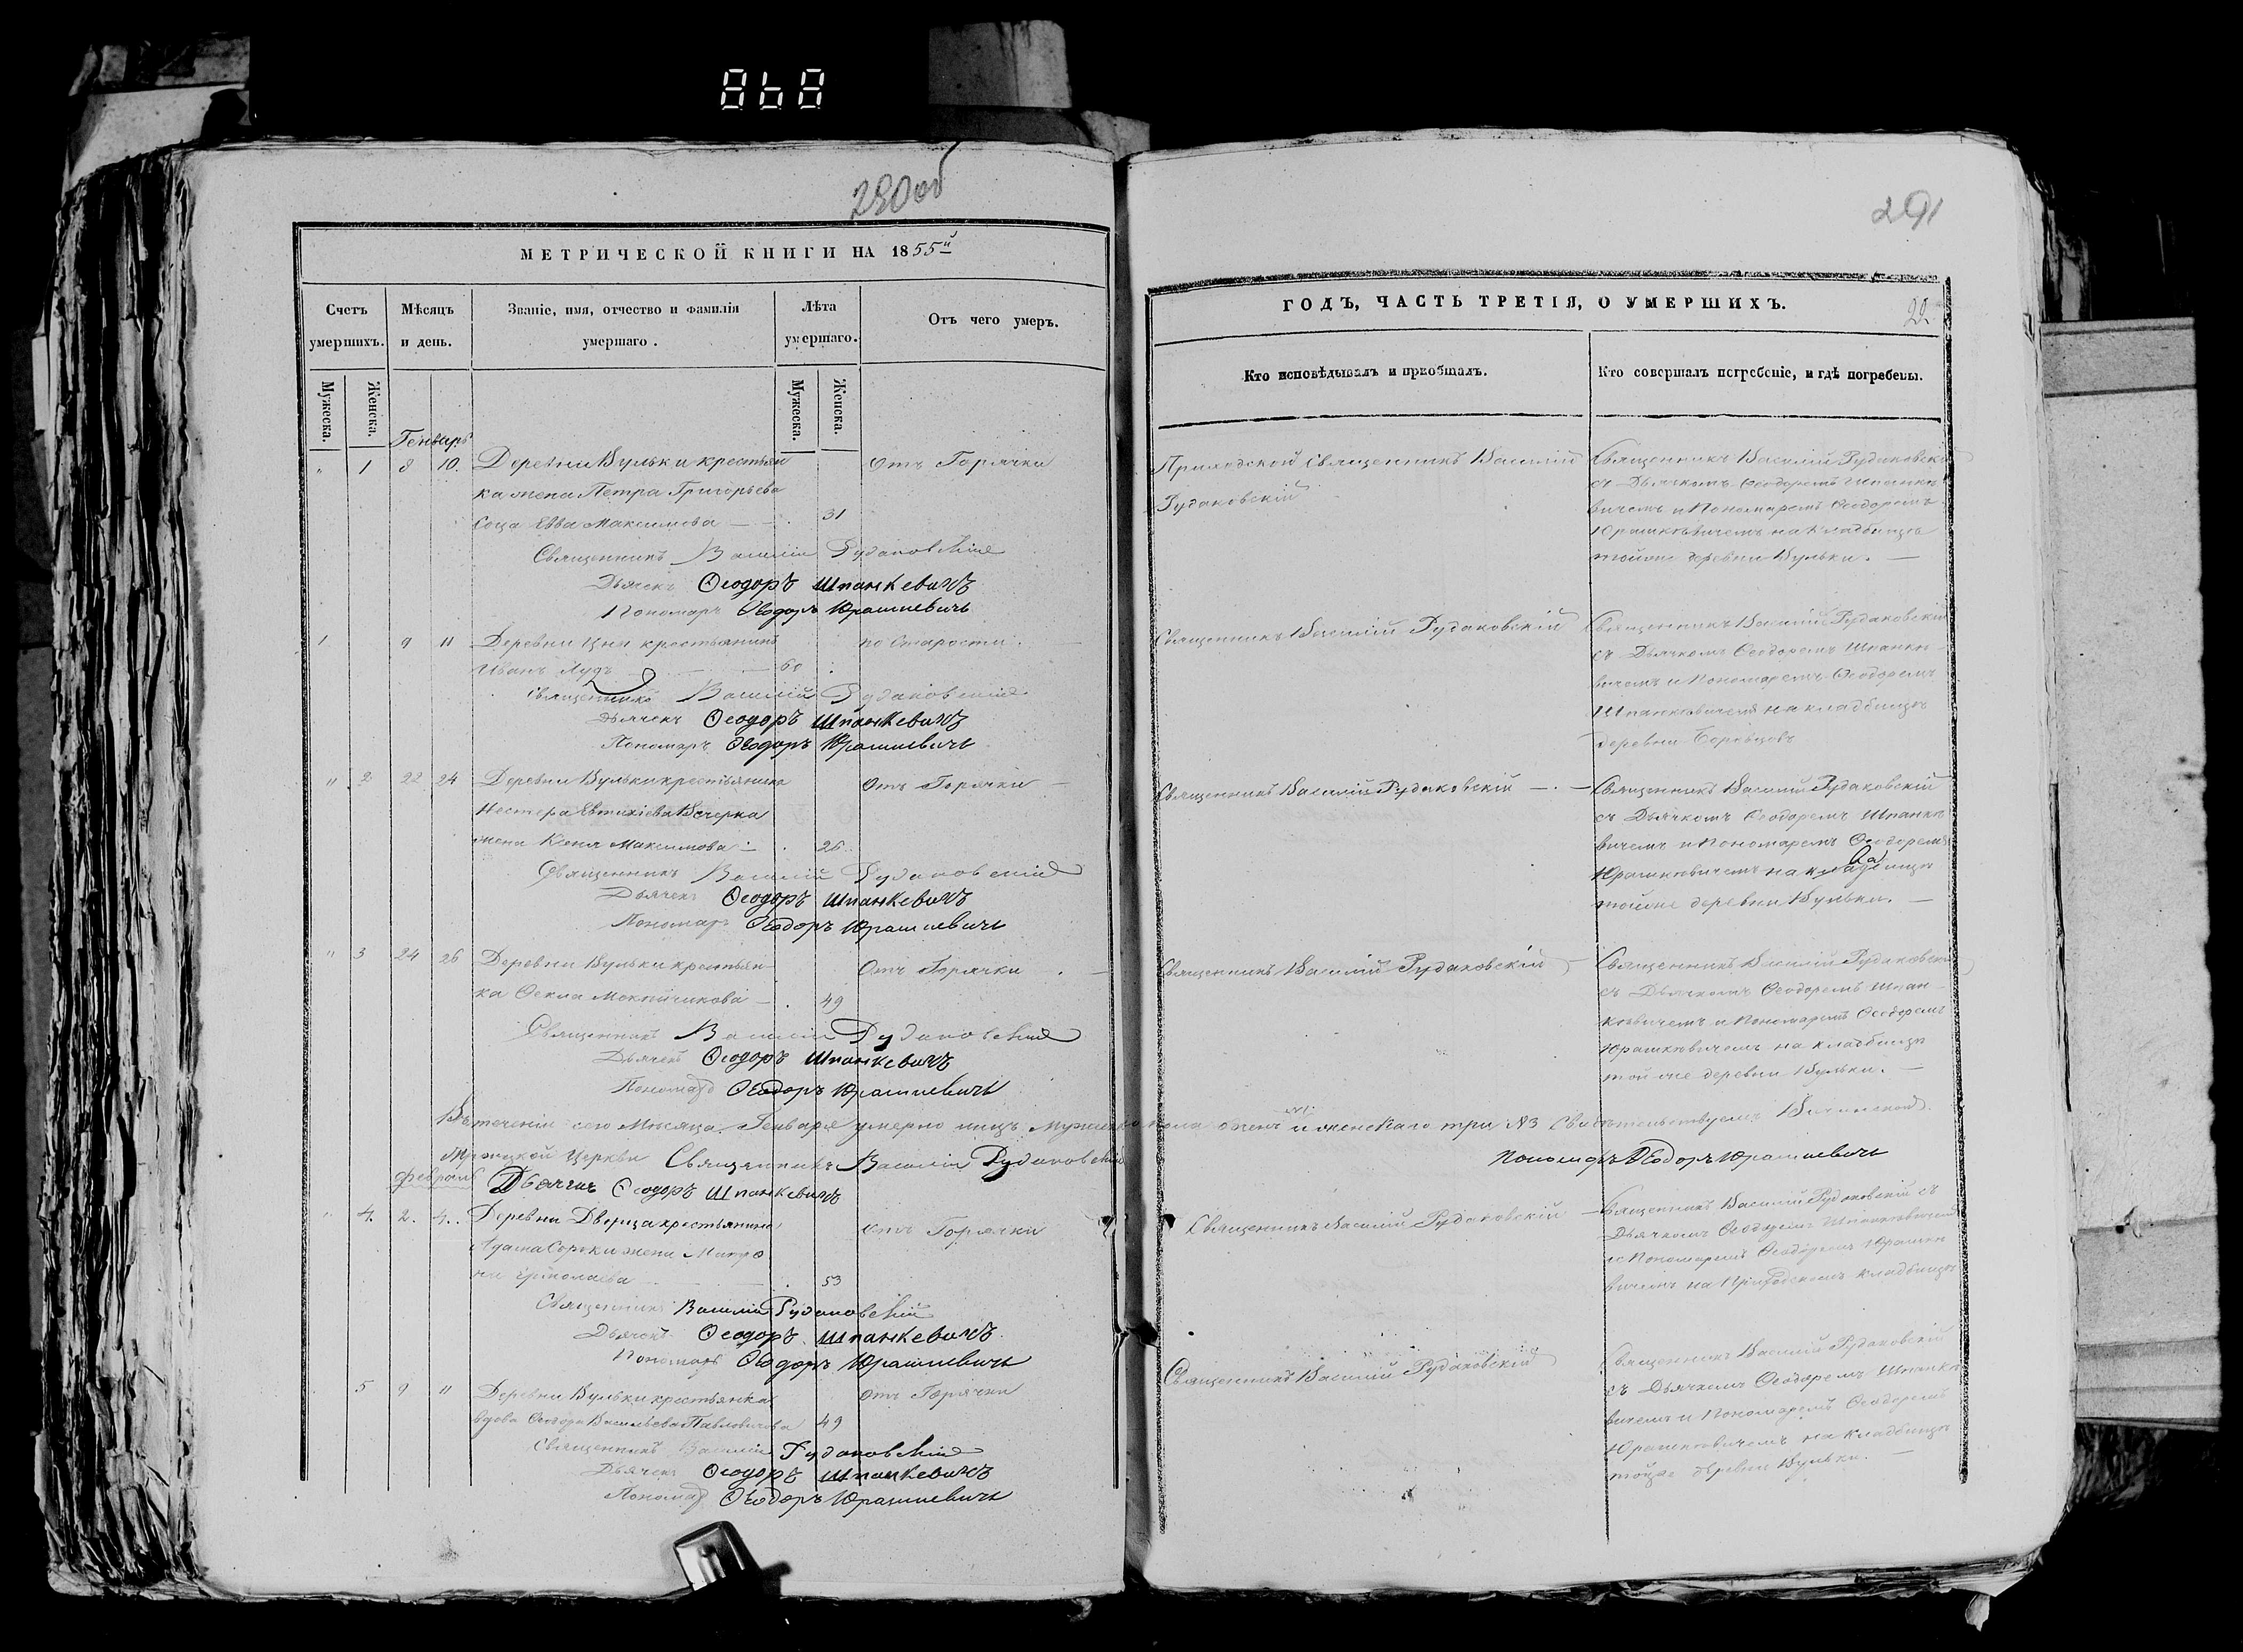 868
290 об
МЕТРИЧЕСКОЙ КНИГИ НА 1855й
Счетъ умершихъ.
Мѣсяцъ и день.
Званіе, имя, отчество и фамилія умершаго.
Лѣта умершаго.
Отъ чего умеръ.
Мужеска.
Женска.
Мужеска.
Женска.
Генварь
" 1 8 10. Деревни Вульки крестьян Отъ Горячки
ка жена Петра Григорьева
Соца Евва Максимова 31
Священникъ Василій Рудаковскій
Дьячекъ Ѳеодоръ Шпанкевичъ
Пономарь Ѳеодоръ Юрашкевичъ
1 9 11 Деревни Цны крестьянинъ по Старости.
Иванъ 60
Священникъ Василій Рудаковскій
Дьячекъ Ѳеодоръ Шпанкевичъ
Пономарь Ѳеодоръ Юрашкевичъ
" 2 22 24 Деревни Вульки крестьянина Отъ Горячки
Нестера Евтихіева Вечерка
жена Ксенія Максимова 26
Священникъ Василій Рудаковскій
Дьячекъ Ѳеодоръ Шпанкевичъ
Пономарь Ѳеодоръ Юрашкевичъ
" 3 24 26 Деревни Вульки крестьян Отъ Горячки
ка Ѳекла 49
Священникъ Василій Рудаковскій
Дьячекъ Ѳеодоръ Шпанкевичъ
Пономарь Ѳеодоръ Юрашкевичъ
Въ теченіи сего Мѣсяца Генваря умерло лицъ мужеска пола одинъ №1. и женскаго три №3 Свидѣтельствуемъ
Троицкой Церкви Священникъ Василій Рудаковскій
Дьячекъ Ѳеодоръ Шпанкевичъ
Пономарь Ѳеодоръ Юрашкевичъ
Февраль
4. 2. 4. Деревни Дворца крестьянина отъ Горячки
Адама Сороки жена Матро
на 53
Священникъ Василій Рудаковскій
Дьячекъ Ѳеодоръ Шпанкевичъ
Пономарь Ѳеодоръ Юрашкевичъ
5 9 11 Деревни Вульки крестьянка отъ Горячки
вдова Ѳеодора Васильева Павловичова 49
Священникъ Василій Рудаковскій
Дьячекъ Ѳеодоръ Шпанкевичъ
Пономарь Ѳеодоръ Юрашкевичъ
291
ГОДЪ, ЧАСТЬ ТРЕТІЯ, О УМЕРШИХЪ.
22
Кто исповѣдывалъ и пріобщалъ.
Кто совершалъ погребеніе, и гдѣ погребены.
Приходской Священникъ Василій
Рудаковскій
Священникъ Василій Рудаковскій
съ Дьячкомъ Ѳеодоромъ Шпанке
вичемъ и Пономаремъ Ѳеодоромъ
Юрашкевичемъ на кладбищѣ
тойже деревни Вульки.
Священникъ Василій Рудаковскій
Священникъ Василій Рудаковскій
съ Дьячкомъ Ѳеодоромъ Шпанке
вичемъ и Пономаремъ Ѳеодоромъ
Шпанкевичемъ на кладбищѣ
деревни
Священникъ Василій Рудаковскій
Священникъ Василій Рудаковскій
съ Дьячкомъ Ѳеодоромъ Шпанке
вичемъ и Пономаремъ Ѳеодоромъ
Юрашкевичемъ на кладбищѣ
тойже деревни Вульки.
Священникъ Василій Рудаковскій
Священникъ Василій Рудаковскій
съ Дьячкомъ Ѳеодоромъ Шпан
кевичемъ и Пономаремъ Ѳеодоромъ
Юрашкевичемъ на кладбищѣ
той же деревни Вульки.
Священникъ Василій Рудаковскій
Священникъ Василій Рудаковскій съ
Дьячкомъ Ѳеодоромъ Шпанкевичемъ
и Пономаремъ Ѳеодоромъ Юрашке
вичемъ на Приходскомъ кладбищѣ
Священникъ Василій Рудаковскій
Священникъ Василій Рудаковскій
съ Дьячкомъ Ѳеодоромъ Шпанке
вичемъ и Пономаремъ Ѳеодоромъ
Юрашкевичемъ на кладбищѣ
тойже деревни Вульки.